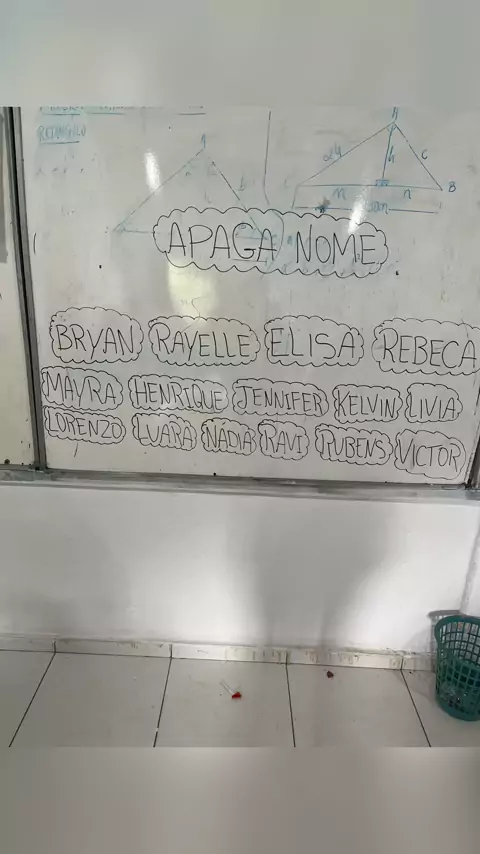 RETÂNGULO
A
b
H
24
h
c
B
m
n
APAGA NOME
BRYAN RAYELLE ELISA REBECA
MAYRA HENRIQUE JENNIFER KELVIN LIVIA
LORENZO LUARA NADIA RAVI RUBENS VICTOR